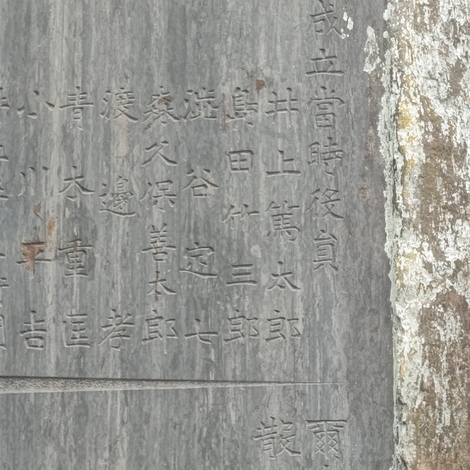 成立當時役員
井上篤太郎
島田竹三郎
澁谷定七
森久保善太郎
渡邊 孝
青木重匡
小川工吉
爾
散